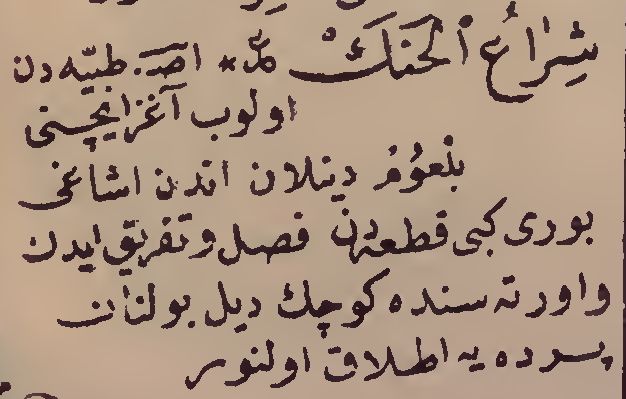 شِرَاعُ الْحَنَكْ مذ* اصـ. طبيّه دن
اولوب آغز ايچنى
بلعوُم دينلان اندن اشاغى
بورى كبى قطعه دن فصل و تفريق ايدن
و اورته سنده كوچك ديل بولنان
پرده يه اطلاق اولنور